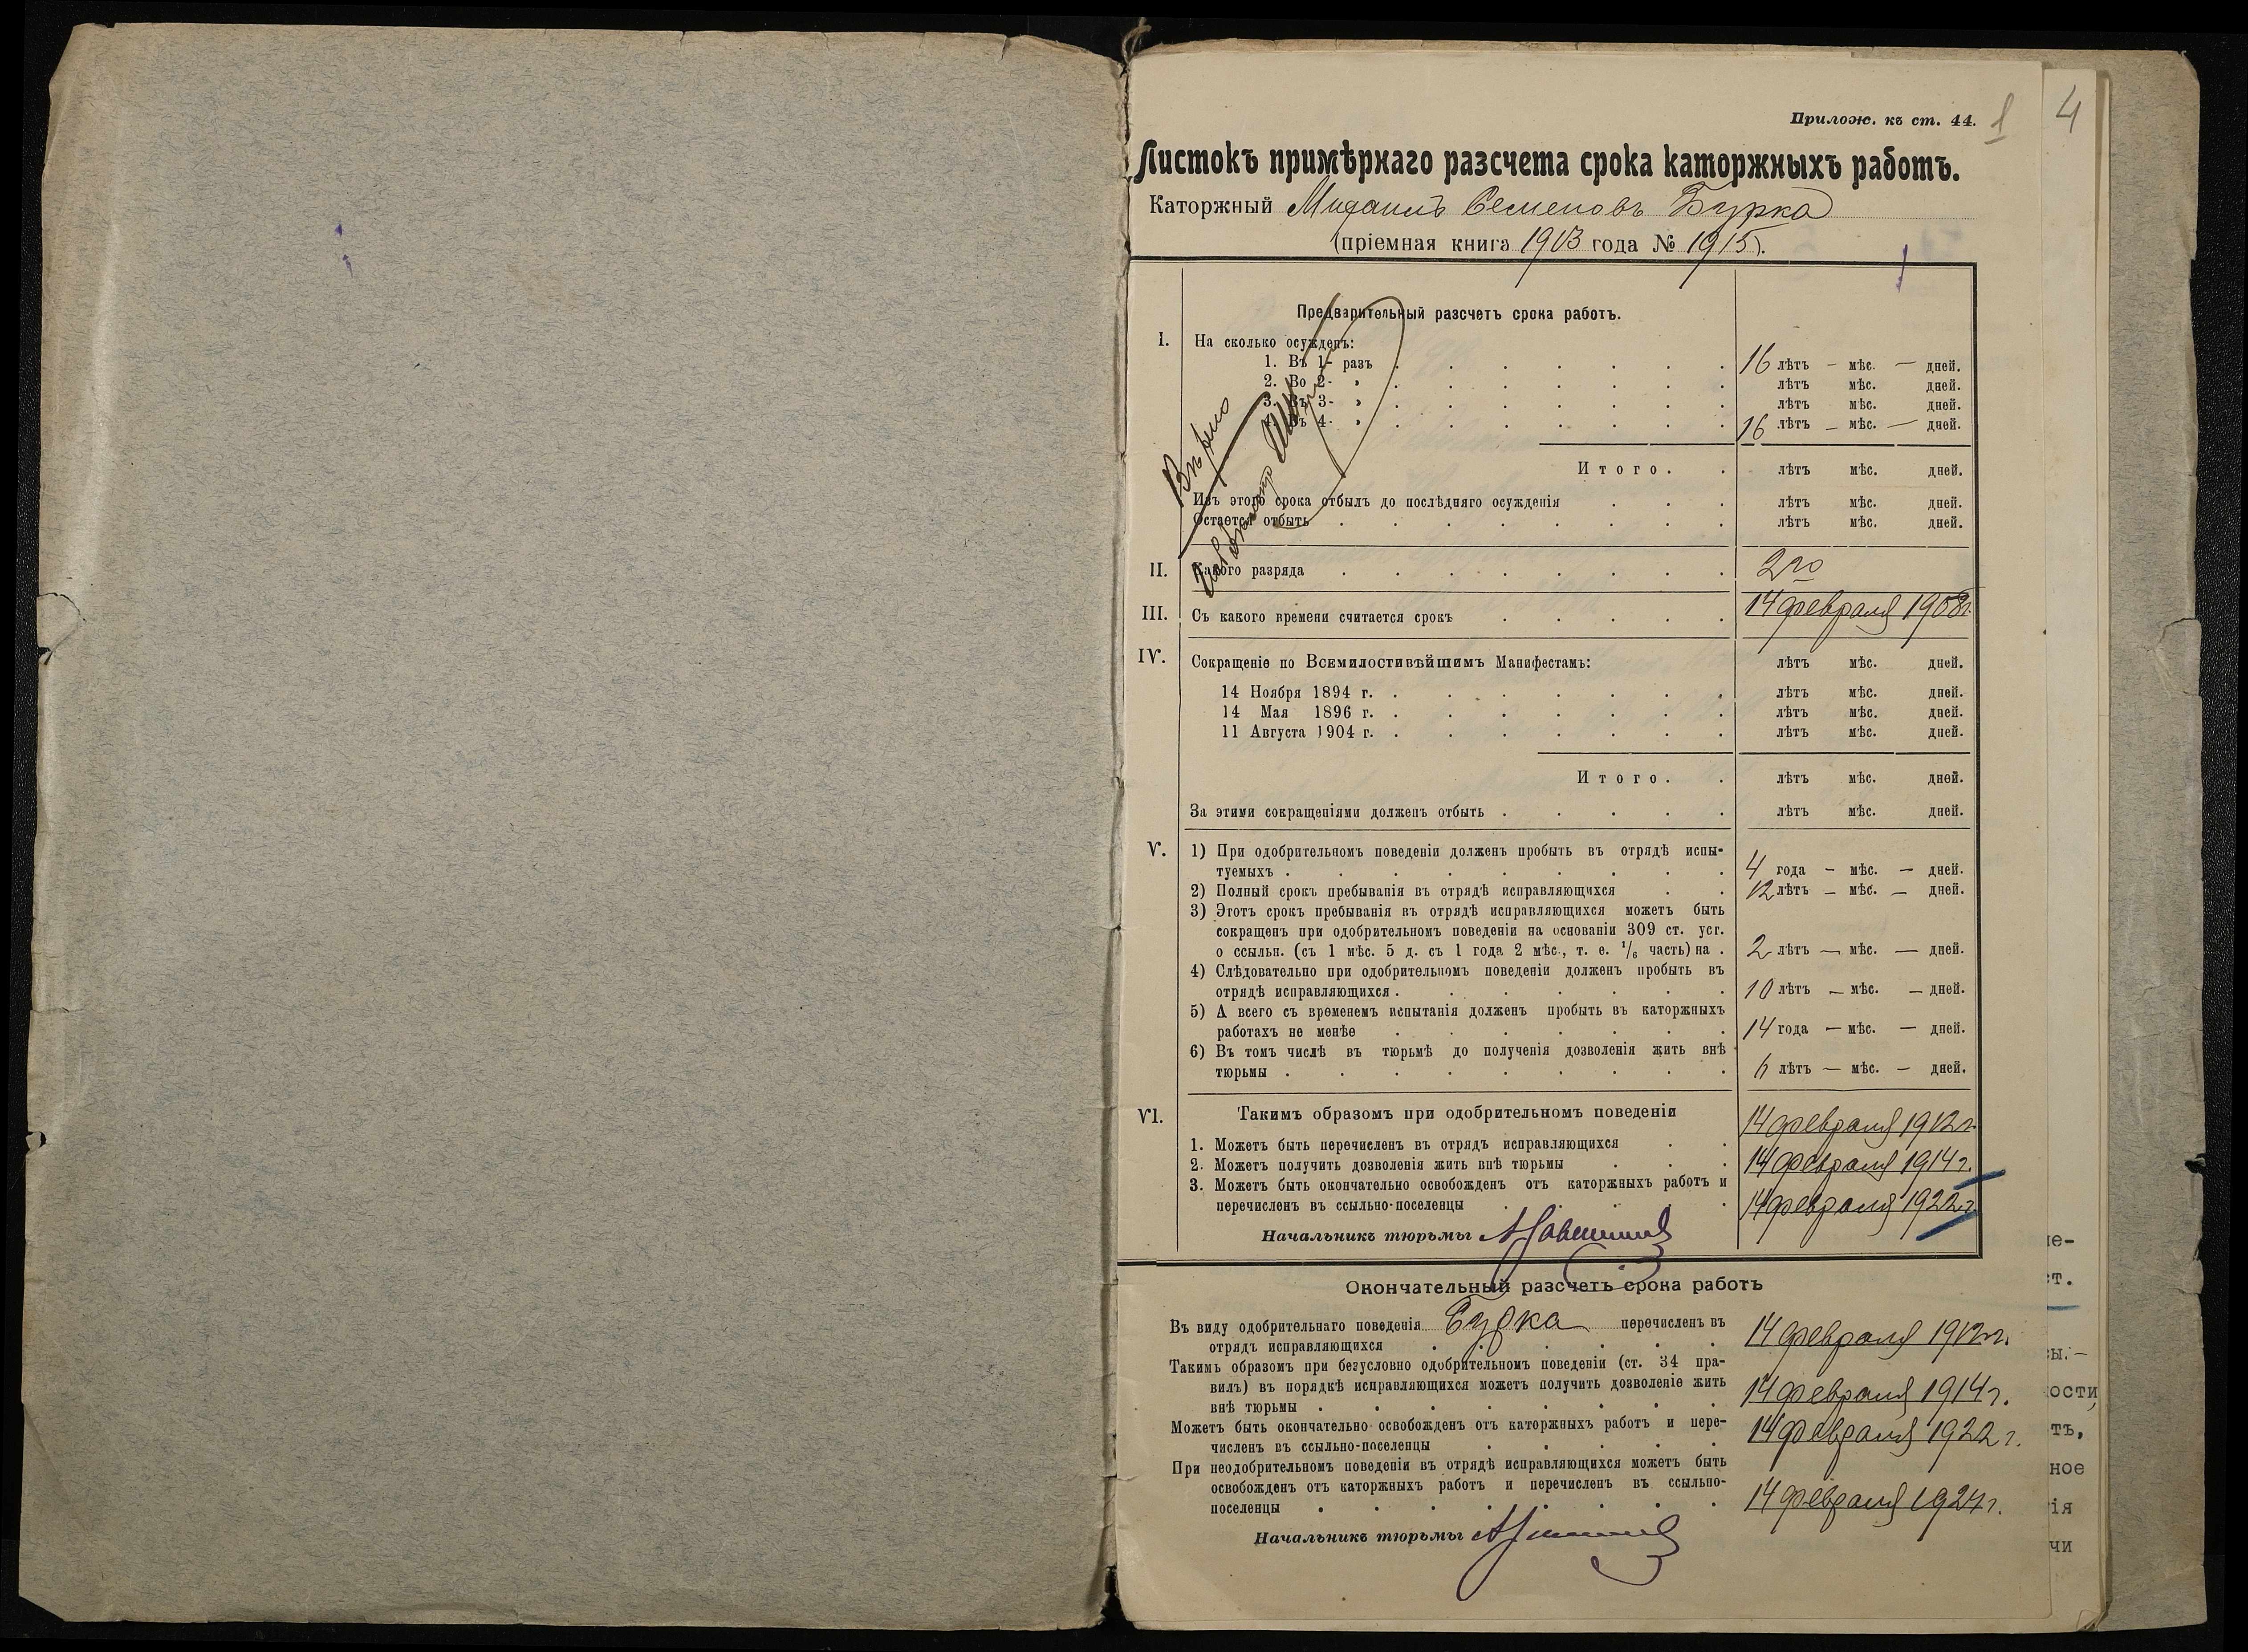 Прилож. къ ст. 44.
1
4
Листокъ примѣрнаго разсчета срока каторжныхъ работъ.
Каторжный Михаилъ Семеновъ Бурка
(пріемная книга 1913 года № 1915).
Предварительный разсчетъ срока работъ.
I. На сколько осужденъ:
1. Въ 1- разъ 16 лѣтъ — мѣс. — дней.
2. Во 2- » лѣтъ мѣс. дней.
3. Въ 3- » лѣтъ мѣс. дней.
4. Въ 4- » 16 лѣтъ — мѣс. — дней.
Вѣрно
Итого. лѣтъ мѣс. дней.
Изъ этого срока отбылъ до послѣдняго осужденія лѣтъ мѣс. дней.
Остается отбыть лѣтъ мѣс. дней.
II. Какого разряда 2го
III. Съ какого времени считается срокъ 14 февраля 1908 г.
IV. Сокращеніе по Всемилостивѣйшимъ Манифестамъ: лѣтъ мѣс. дней.
14 Ноября 1894 г. лѣтъ мѣс. дней.
14 Мая 1896 г. лѣтъ мѣс. дней.
11 Августа 1904 г. лѣтъ мѣс. дней.
Итого. лѣтъ мѣс. дней.
За этими сокращеніями долженъ отбыть лѣтъ мѣс. дней.
V. 1) При одобрительномъ поведеніи долженъ пробыть въ отрядѣ испы-
туемыхъ 4 года — мѣс. — дней.
2) Полный срокъ пребыванія въ отрядѣ исправляющихся 12 лѣтъ — мѣс. — дней.
3) Этотъ срокъ пребыванія въ отрядѣ исправляющихся можетъ быть
сокращенъ при одобрительномъ поведеніи на основаніи 309 ст. уст.
о ссыльн. (съ 1 мѣс. 5 д. съ 1 года 2 мѣс., т. е. 1/6 часть) на 2 лѣтъ — мѣс. — дней.
4) Слѣдовательно при одобрительномъ поведеніи долженъ пробыть въ
отрядѣ исправляющихся 10 лѣтъ — мѣс. — дней.
5) А всего съ временемъ испытанія долженъ пробыть въ каторжныхъ
работахъ не менѣе 14 года — мѣс. — дней.
6) Въ томъ числѣ въ тюрьмѣ до полученія дозволенія жить внѣ
тюрьмы 6 лѣтъ — мѣс. — дней.
VI. Такимъ образомъ при одобрительномъ поведеніи
1. Можетъ быть перечисленъ въ отрядъ исправляющихся 14 февраля 1912 г.
2. Можетъ получить дозволенія жить внѣ тюрьмы 14 февраля 1914 г.
3. Можетъ быть окончательно освобожденъ отъ каторжныхъ работъ и
перечисленъ въ ссыльно-поселенцы 14 февраля 1922 г.
Начальникъ тюрьмы
Окончательный разсчетъ срока работъ
Въ виду одобрительнаго поведенія Бурка перечисленъ въ
отрядъ исправляющихся 14 февраля 1912 г.
Такимъ образомъ при безусловно одобрительномъ поведеніи (ст. 34 пра-
вилъ) въ порядкѣ исправляющихся можетъ получить дозволеніе жить
внѣ тюрьмы 14 февраля 1914 г.
Можетъ быть окончательно освобожденъ отъ каторжныхъ работъ и пере-
численъ въ ссыльно-поселенцы 14 февраля 1922 г.
При неодобрительномъ поведеніи въ отрядѣ исправляющихся можетъ быть
освобожденъ отъ каторжныхъ работъ и перечисленъ въ ссыльно-
поселенцы 14 февраля 1924 г.
Начальникъ тюрьмы